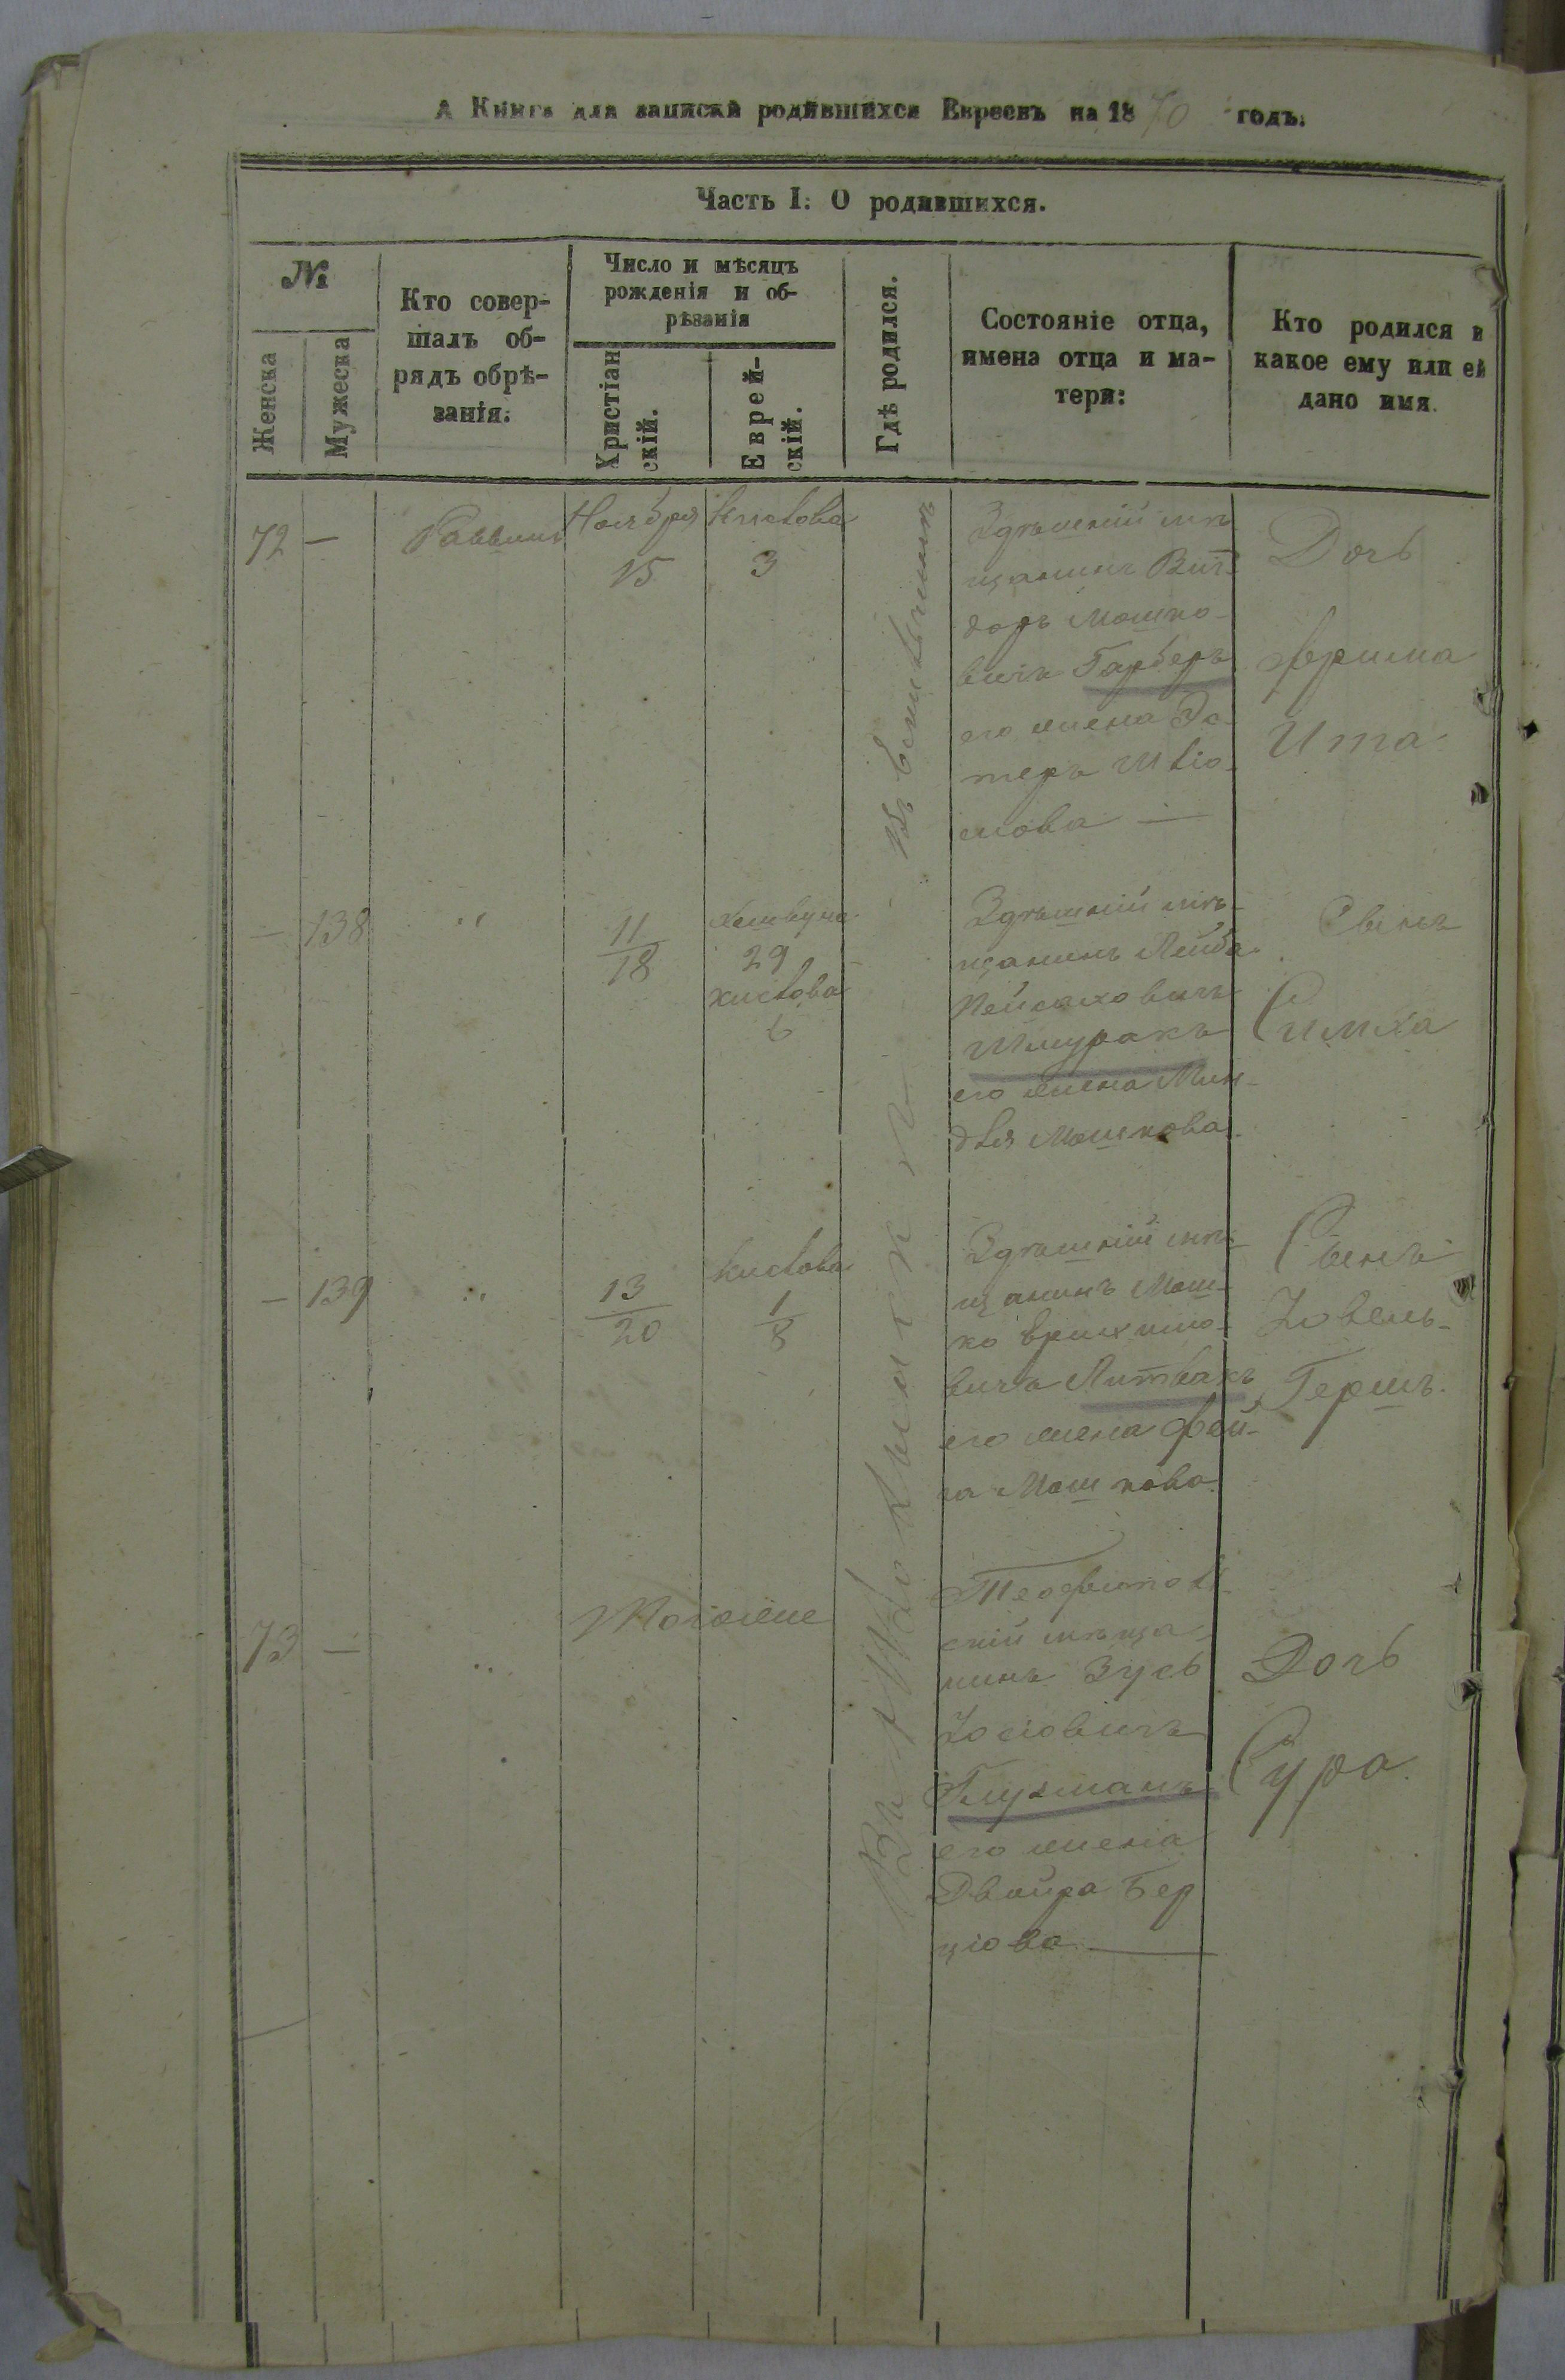 А Книга для записки родившихся Евреевъ на 1870 годъ.
Часть I. О родившихся.
№
Женска
Мужеска
Кто совер-
шалъ об-
рядъ обрѣ-
занія.
Число и мѣсяцъ
рожденія и об-
рѣзанія
Христіан
скій.
Еврей-
скій.
Гдѣ родился.
Состояніе отца,
имена отца и ма-
тери:
Кто родился и
какое ему или ей
дано имя.
72 —
Раввинъ
Ноября
15
Кислова
3
Здѣшній мѣ
щанинъ
Мошко-
вичъ Гарберъ
его жена Эс
теръ
мова —
Дочь
Фрима
Ита
— 138
"
11
18
Хешвуна
29
Кислова
6
Здѣшній мѣ-
щанинъ Лейба
Пейсаховичъ
Шмуракъ
его жена Мин-
для Мошкова.
Сынъ
Симха
— 139
"
13
20
Кислова
1
8
Здѣшній мѣ-
щанинъ Мош-
ко
вичъ Литвакъ
его жена Фей-
га Мошкова.
Сынъ
Іовель-
Гершъ.
73 —
"
Тогоже
Теофиполь
скій мѣща-
нинъ Зусь
Іосіовичъ
Глузманъ
его жена
Двойра Бер
ціова —
Дочь
Сура